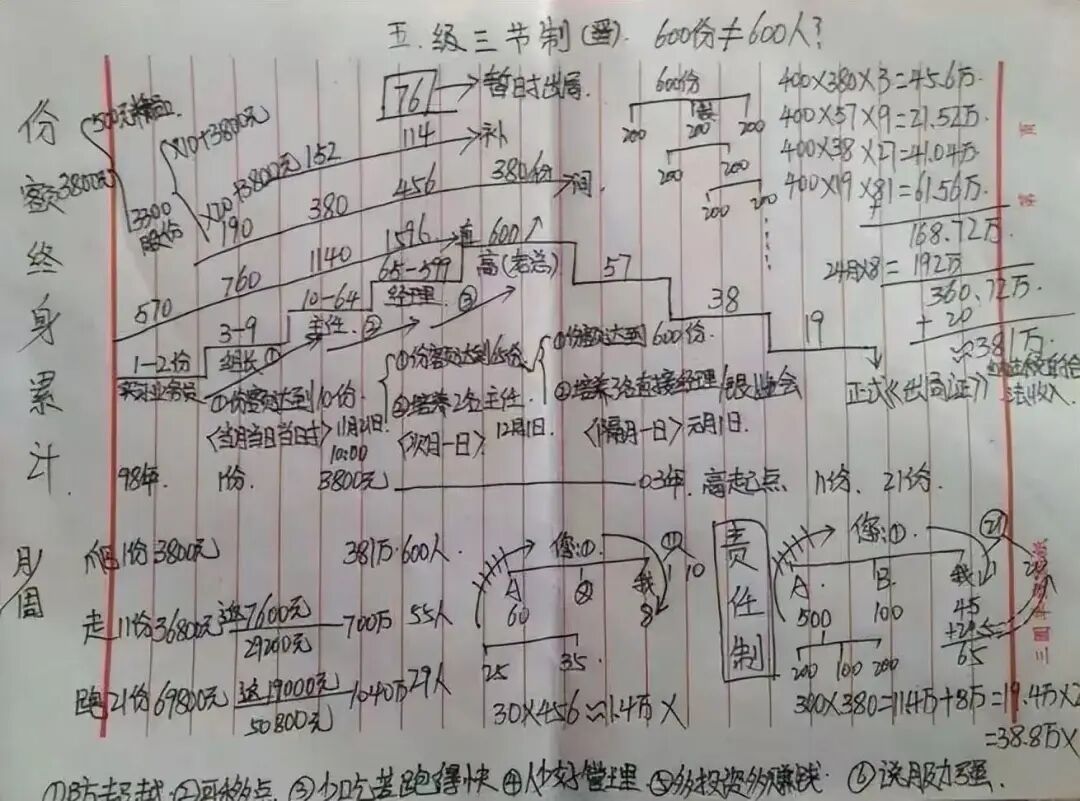 五级三节制(晋). 600份≠600人?
份额终身累计.
76 → 暂时出局.
500元
3800元
3300
股份
×10+3800元
×20+3800元
152 114 补
190 380 456 380份 间
570 760 1140 1596 直
600
高(老总)
65-599
经理. ③
10-64
主任. ②
3-9
组长 ①
1-2份
实习业务员
57
38
19
600份
200 200 200
200 200
200 200
400×380×3=45.6万.
400×57×9=21.52万.
400×38×27=41.04万
400×19×81=61.56万
+
168.72万.
24月×8=192万
360.72万.
+20
≈381万.
正式《出局证》
①份额达到10份
〈当月当日当日时〉11月21日.
10:00
①份额达到65份
②培养2名主任.
〈次月一日〉 12月1日.
①份额达到600份.
②培养3名直接经理
〈隔月一日〉元月1日.
98年. 1份. 3800元 — 03年. 高起点 11份. 21份.
月/周
1份3800元 381万·600人.
走11份36800元 返7600元 700万 55人
29200元
跑21份69800元 返19000元 1040万29人
50800元
您:① ⑪
A ② 我 1 10
60 8
25 35.
30×456≈1.4万×
责任制
您:① ㉑
A. B. 我 1
500 100 45
+20
65
200 100 200
300×380=11.4万+8万=19.4万×2
=38.8万×
③少吃苦跑得快 ④人少好管理 ⑤多投资多赚钱. ⑥说服力强.